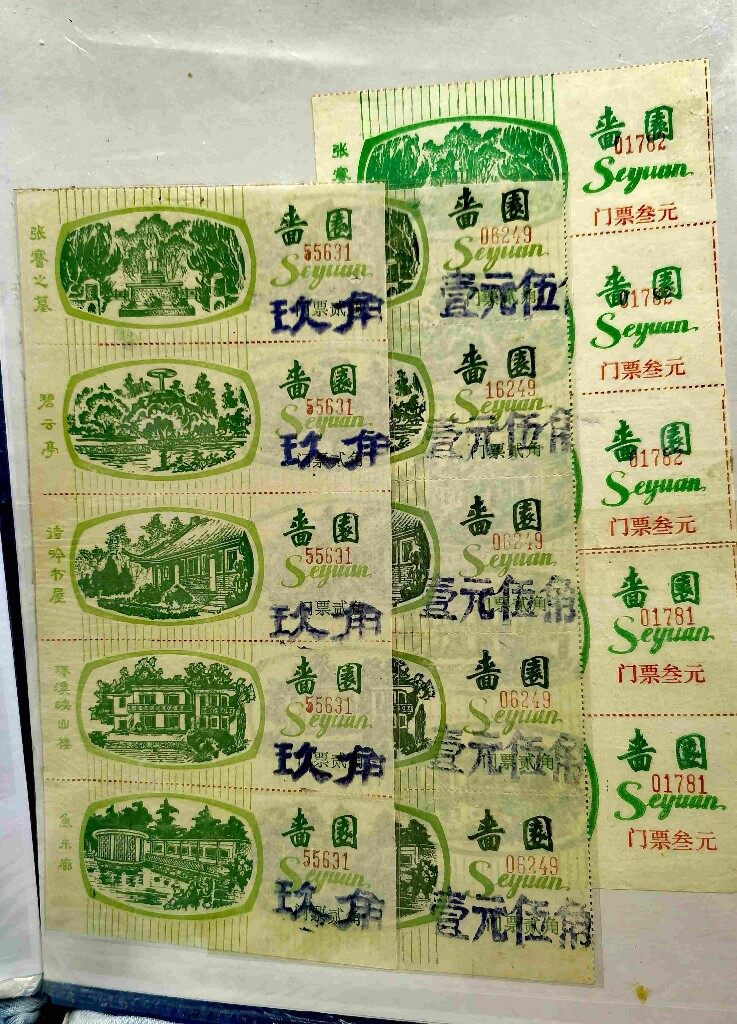 张謇之墓
啬園
55631
Seyuan
门票贰角
玖角
碧云亭
啬園
55631
Seyuan
门票贰角
玖角
诗吟书屋
啬園
55631
Seyuan
门票贰角
玖角
啬園
55631
Seyuan
门票贰角
玖角
啬園
55631
Seyuan
门票贰角
玖角
啬園
06249
Seyuan
门票贰角
壹元伍
啬園
16249
Seyuan
门票贰角
壹元伍角
啬園
06249
Seyuan
门票贰角
壹元伍角
啬園
06249
Seyuan
门票贰角
壹元伍角
啬園
06249
Seyuan
门票贰角
壹元伍角
张謇
啬園
01782
Seyuan
门票叁元
啬園
01782
Seyuan
门票叁元
啬園
01782
Seyuan
门票叁元
啬園
01781
Seyuan
门票叁元
啬園
01781
Seyuan
门票叁元